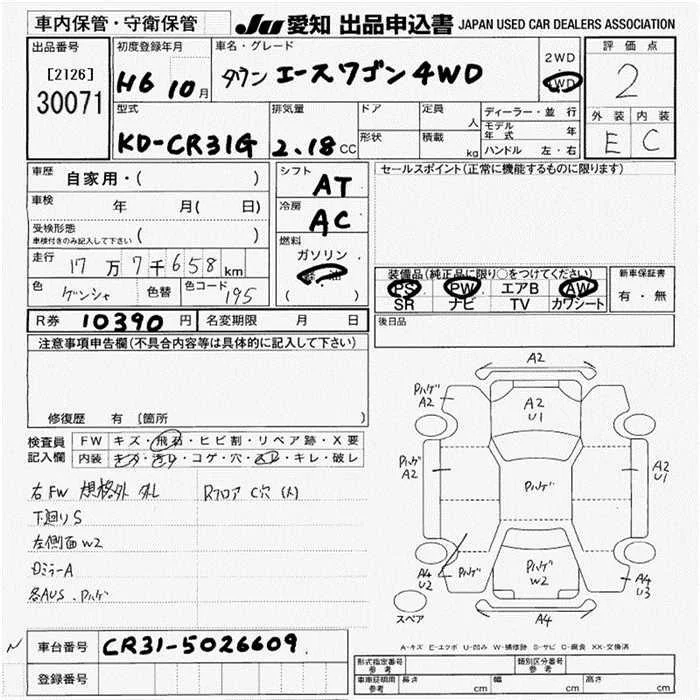 車内保管・守衛保管 JU 愛知 出品申込書 JAPAN USED CAR DEALERS ASSOCIATION
出品番号 初度登録年月 車名・グレード 2WD 4WD 評価点
[2126] 30071 H6 10月 タウンエースワゴン 4WD 2
型式 排気量 ドア 定員 人 ディーラー・並行 外装 内装
KD-CR31G 2.18cc 形状 積載 kg モデル年式 年 E C
ハンドル 左・右
車歴 自家用・( ) シフト AT セールスポイント(正常に機能するものに限ります)
車検 年 月( 日) 冷房 AC
受検形態 車検付きのみ記入して下さい ( ) 燃料 ガソリン
走行 17万7千658km 装備品(純正品に限り○をつけてください) 新車保証書
色 ゲンシャ 色替 色コード 195 ( ) PS PW エアB AW 有・無
SR ナビ TV カワシート
R券 10390円 名変期限 月 日 後日品
注意事項申告欄(不具合内容等は具体的に記入して下さい)
A2
Pハゲ A2 A2 U1
修復歴 有 [箇所
検査員 FW キズ・飛石・ヒビ割・リペア跡・X要
記入欄 内装 キズ・汚レ・コゲ・穴・スレ・キレ・破レ
Pハゲ A2 Pハゲ A2 U1
右FW 規格外 外し Rフロア C穴(大)
下廻りS
左側面W2
ロミラーA A4 U2 Pハゲ Pハゲ W2 A4 U3
各AUS.Pハゲ
スペア A4
車台番号 CR31-5026609 A-キズ E-エクボ U-凹み W-補修跡 S-サビ C-腐食 XX-交換済
登録番号 形式指定番号 参考 類別区分番号 参考
車庫証明用 参考 長さ cm 幅 cm 高さ cm